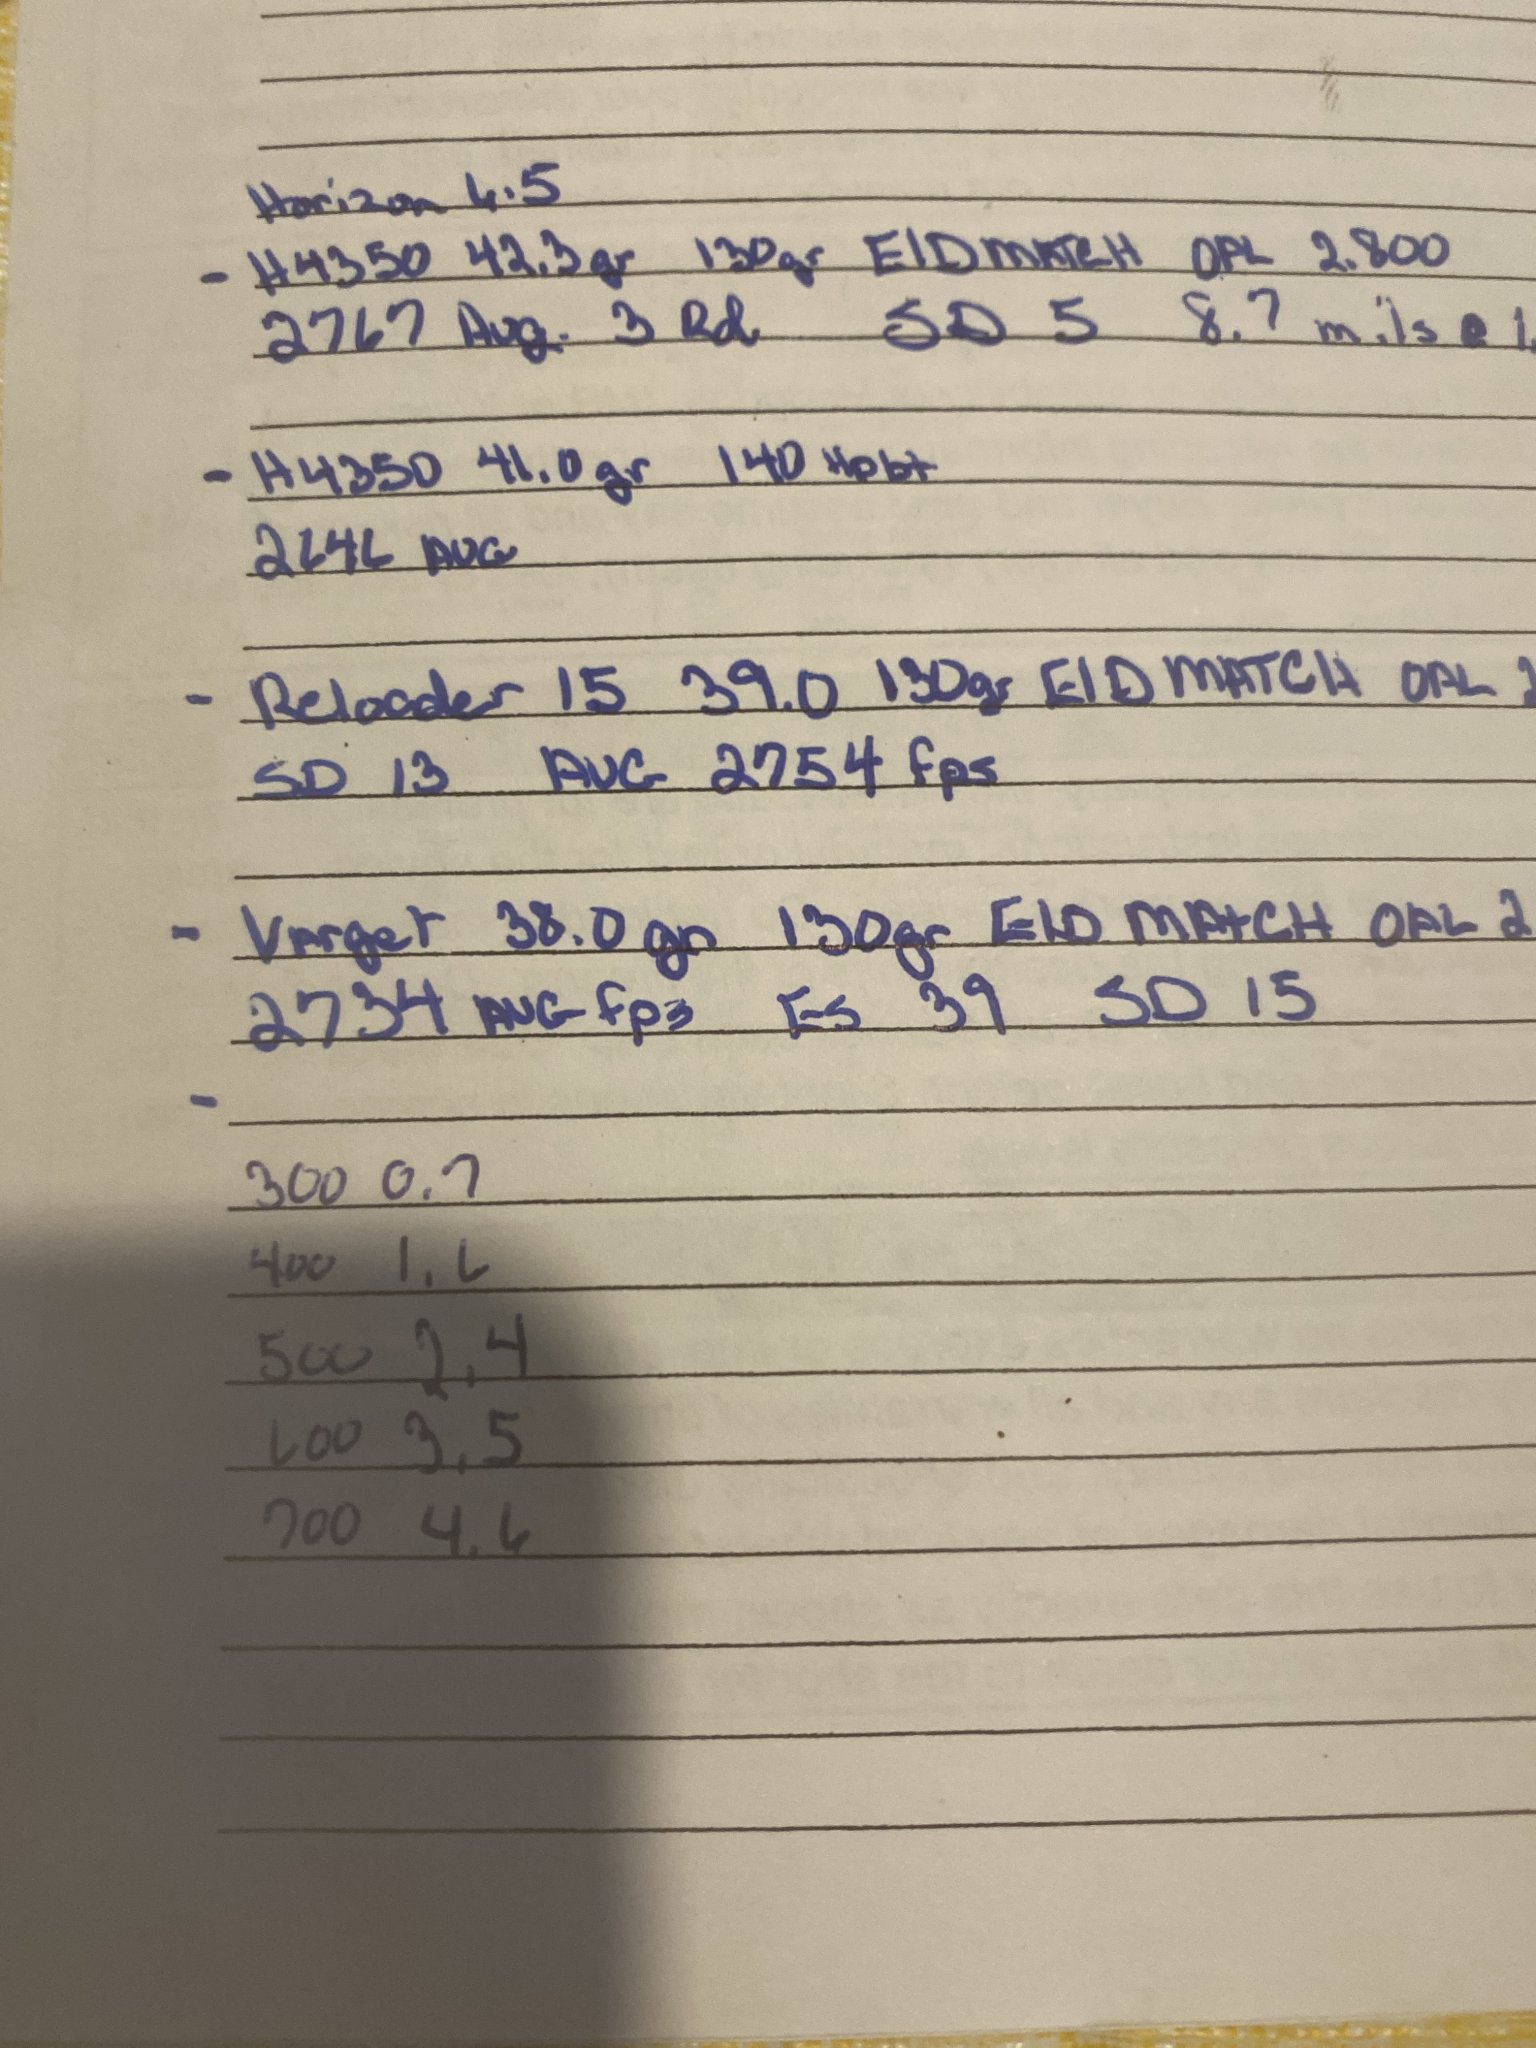 Horizon 6.5
- H4350 42.3gr 130gr ElD MATCH OAL 2.800
2767 Avg. 3 Rd SD 5 8.7 mils @
- H4350 41.0gr 140 Hpbt
2646 AVG
- Reloader 15 39.0 130gr ElD MATCH OAL
SD 13 AVG 2754 fps
- Varget 38.0gr 130gr ElD MATCH OAL 2
2734 AVG fps ES 39 SD 15
-
300 0.7
400 1.6
500 2.4
600 3.5
700 4.6